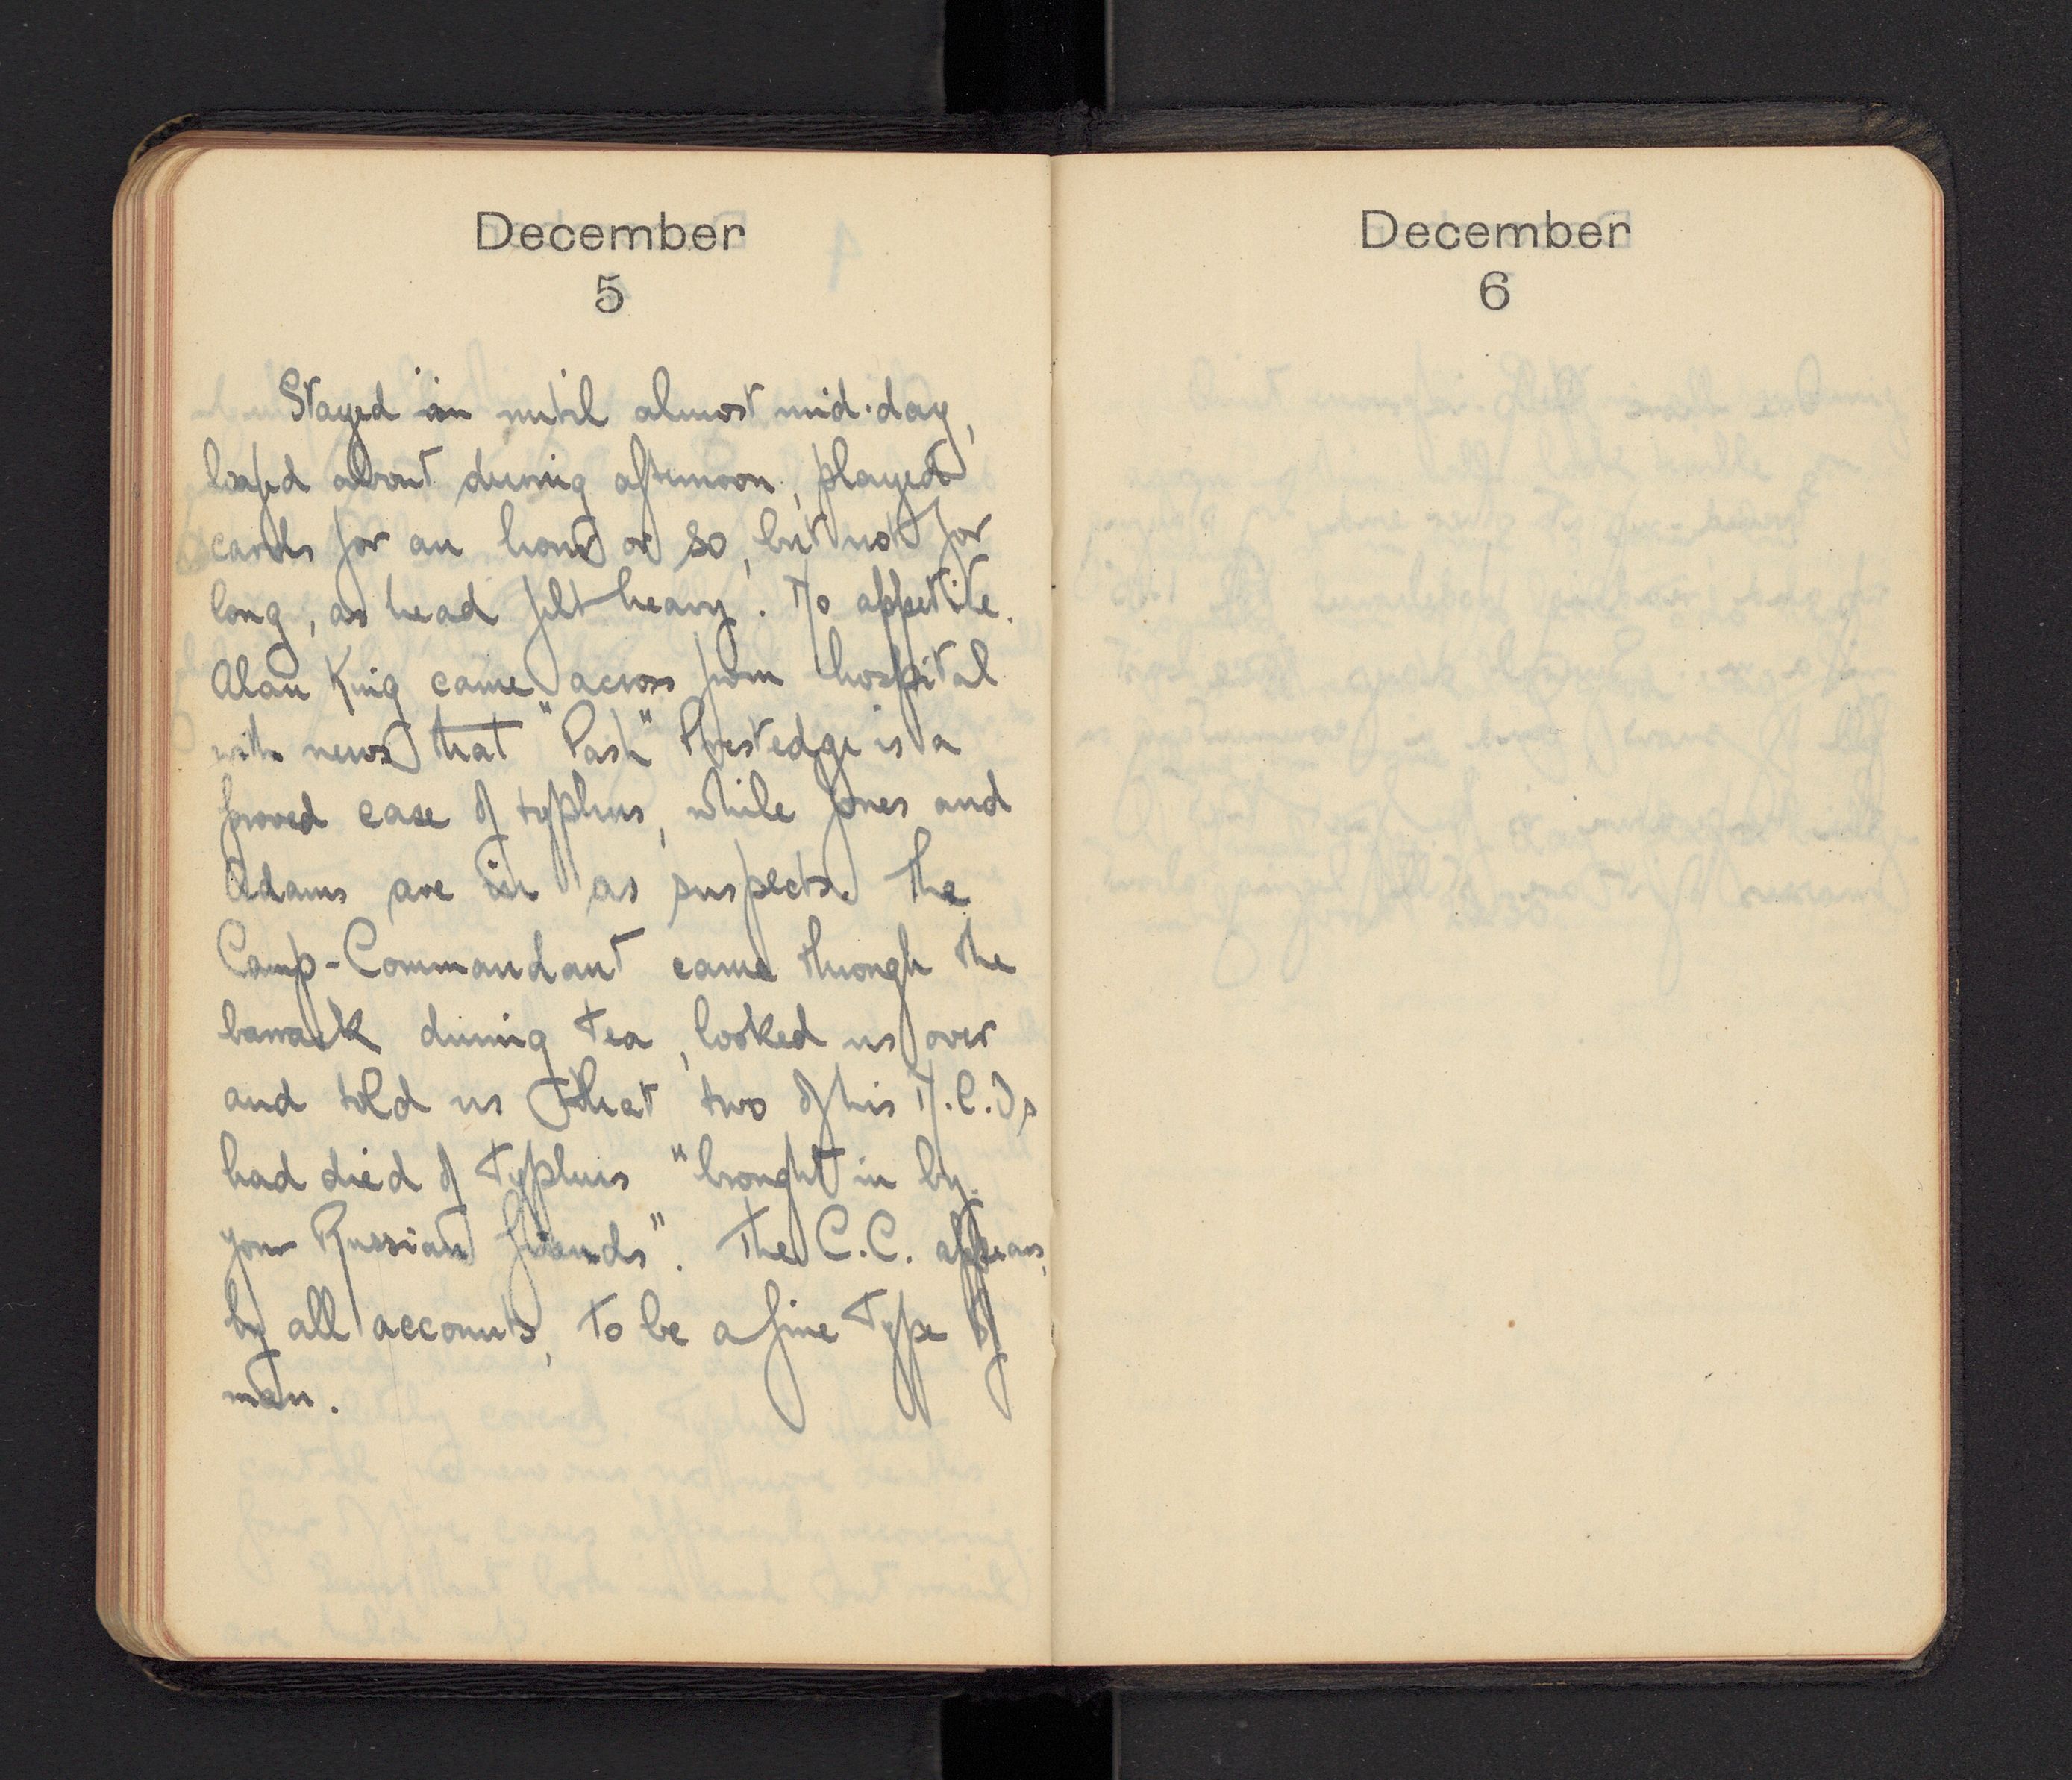 December
5
Stayed in until almost mid-day,
loafed about during afternoon, played
cards for an hour or so, but not for
long, as head felt heavy. No appetite.
Alan King came across from hospital
with news that "Pash" Prestedge is a
proved case of typhus, while Jones and
Adams are in as suspects. The
Camp-Commandant came through the
barrack during tea, looked us over
and told us that two of his N.C.Os
had died of Typhus "brought in by
your Russian friends". The C.C. appears,
by all accounts, to be a fine type of
man.
December
6